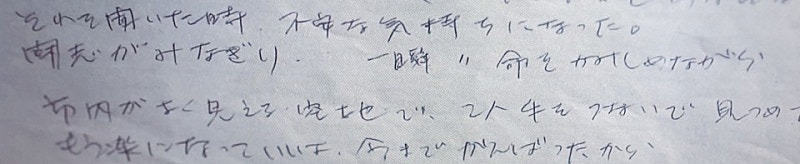 それを聞いた時、不安な気持ちになった。
闘志がみなぎり、一瞬〃命をかみしめながら
市内がよく見える空地で、2人手をつないで見つめ
もう楽になっていいよ、今までがんばったから